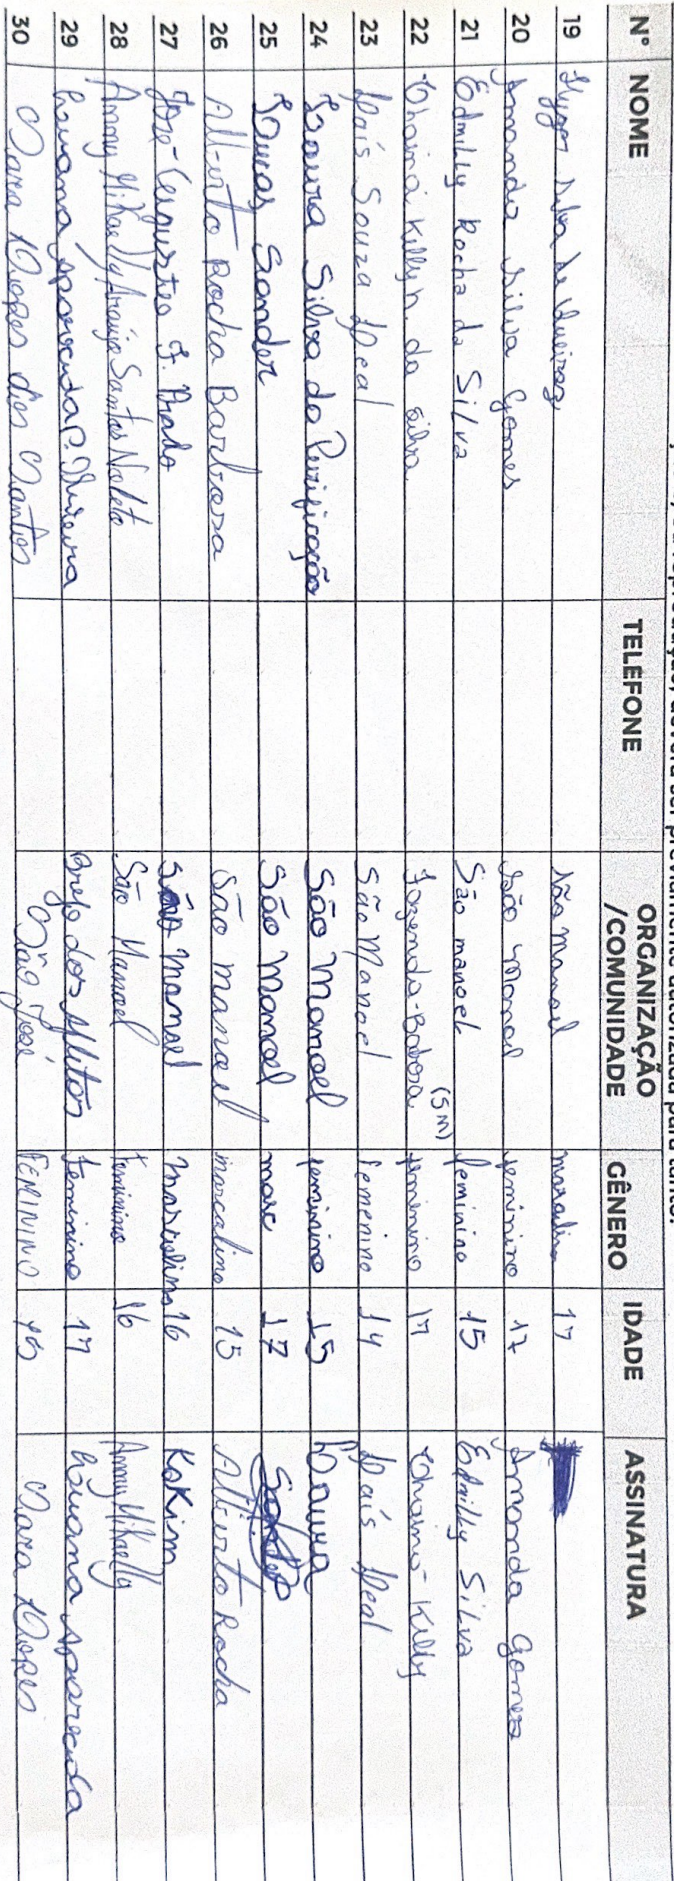 reprodução, deverá ser previamente autorizada para tanto.
N° NOME TELEFONE ORGANIZAÇÃO /COMUNIDADE GÊNERO IDADE ASSINATURA
19 Silva de Queiroz São Manoel 17
20 Amanda Silva Gomes São Manoel feminino 17 Amanda Gomes
21 Edmilly Rocha da Silva São manoel feminino 15 Edmilly Silva
22 Thainá Kellyn da Silva Fazenda Babosa (SM) feminino 17 Thainá Kelly
23 Laís Souza Leal São Manoel femenino 14 Laís Leal
24 Laura Silva da Purificação São Manoel feminino 15 Laura
25 Lucas Sander São Manoel masc 17 Sander
26 Alberto Rocha Barbosa São manoel mascalino 15 Alberto Rocha
27 José Augusto F. Prado São Manoel masculino 16 KoKim
28 Anny Mikaelly Araújo Santos Noleto São Manoel feminino 16 Anny Mikaelly
29 Louana Aparecida P. Oliveira Brejo dos Altos feminino 17 Louana Aparecida
30 Sara Lopes dos Santos São José FEMININO 15 Sara Lopes